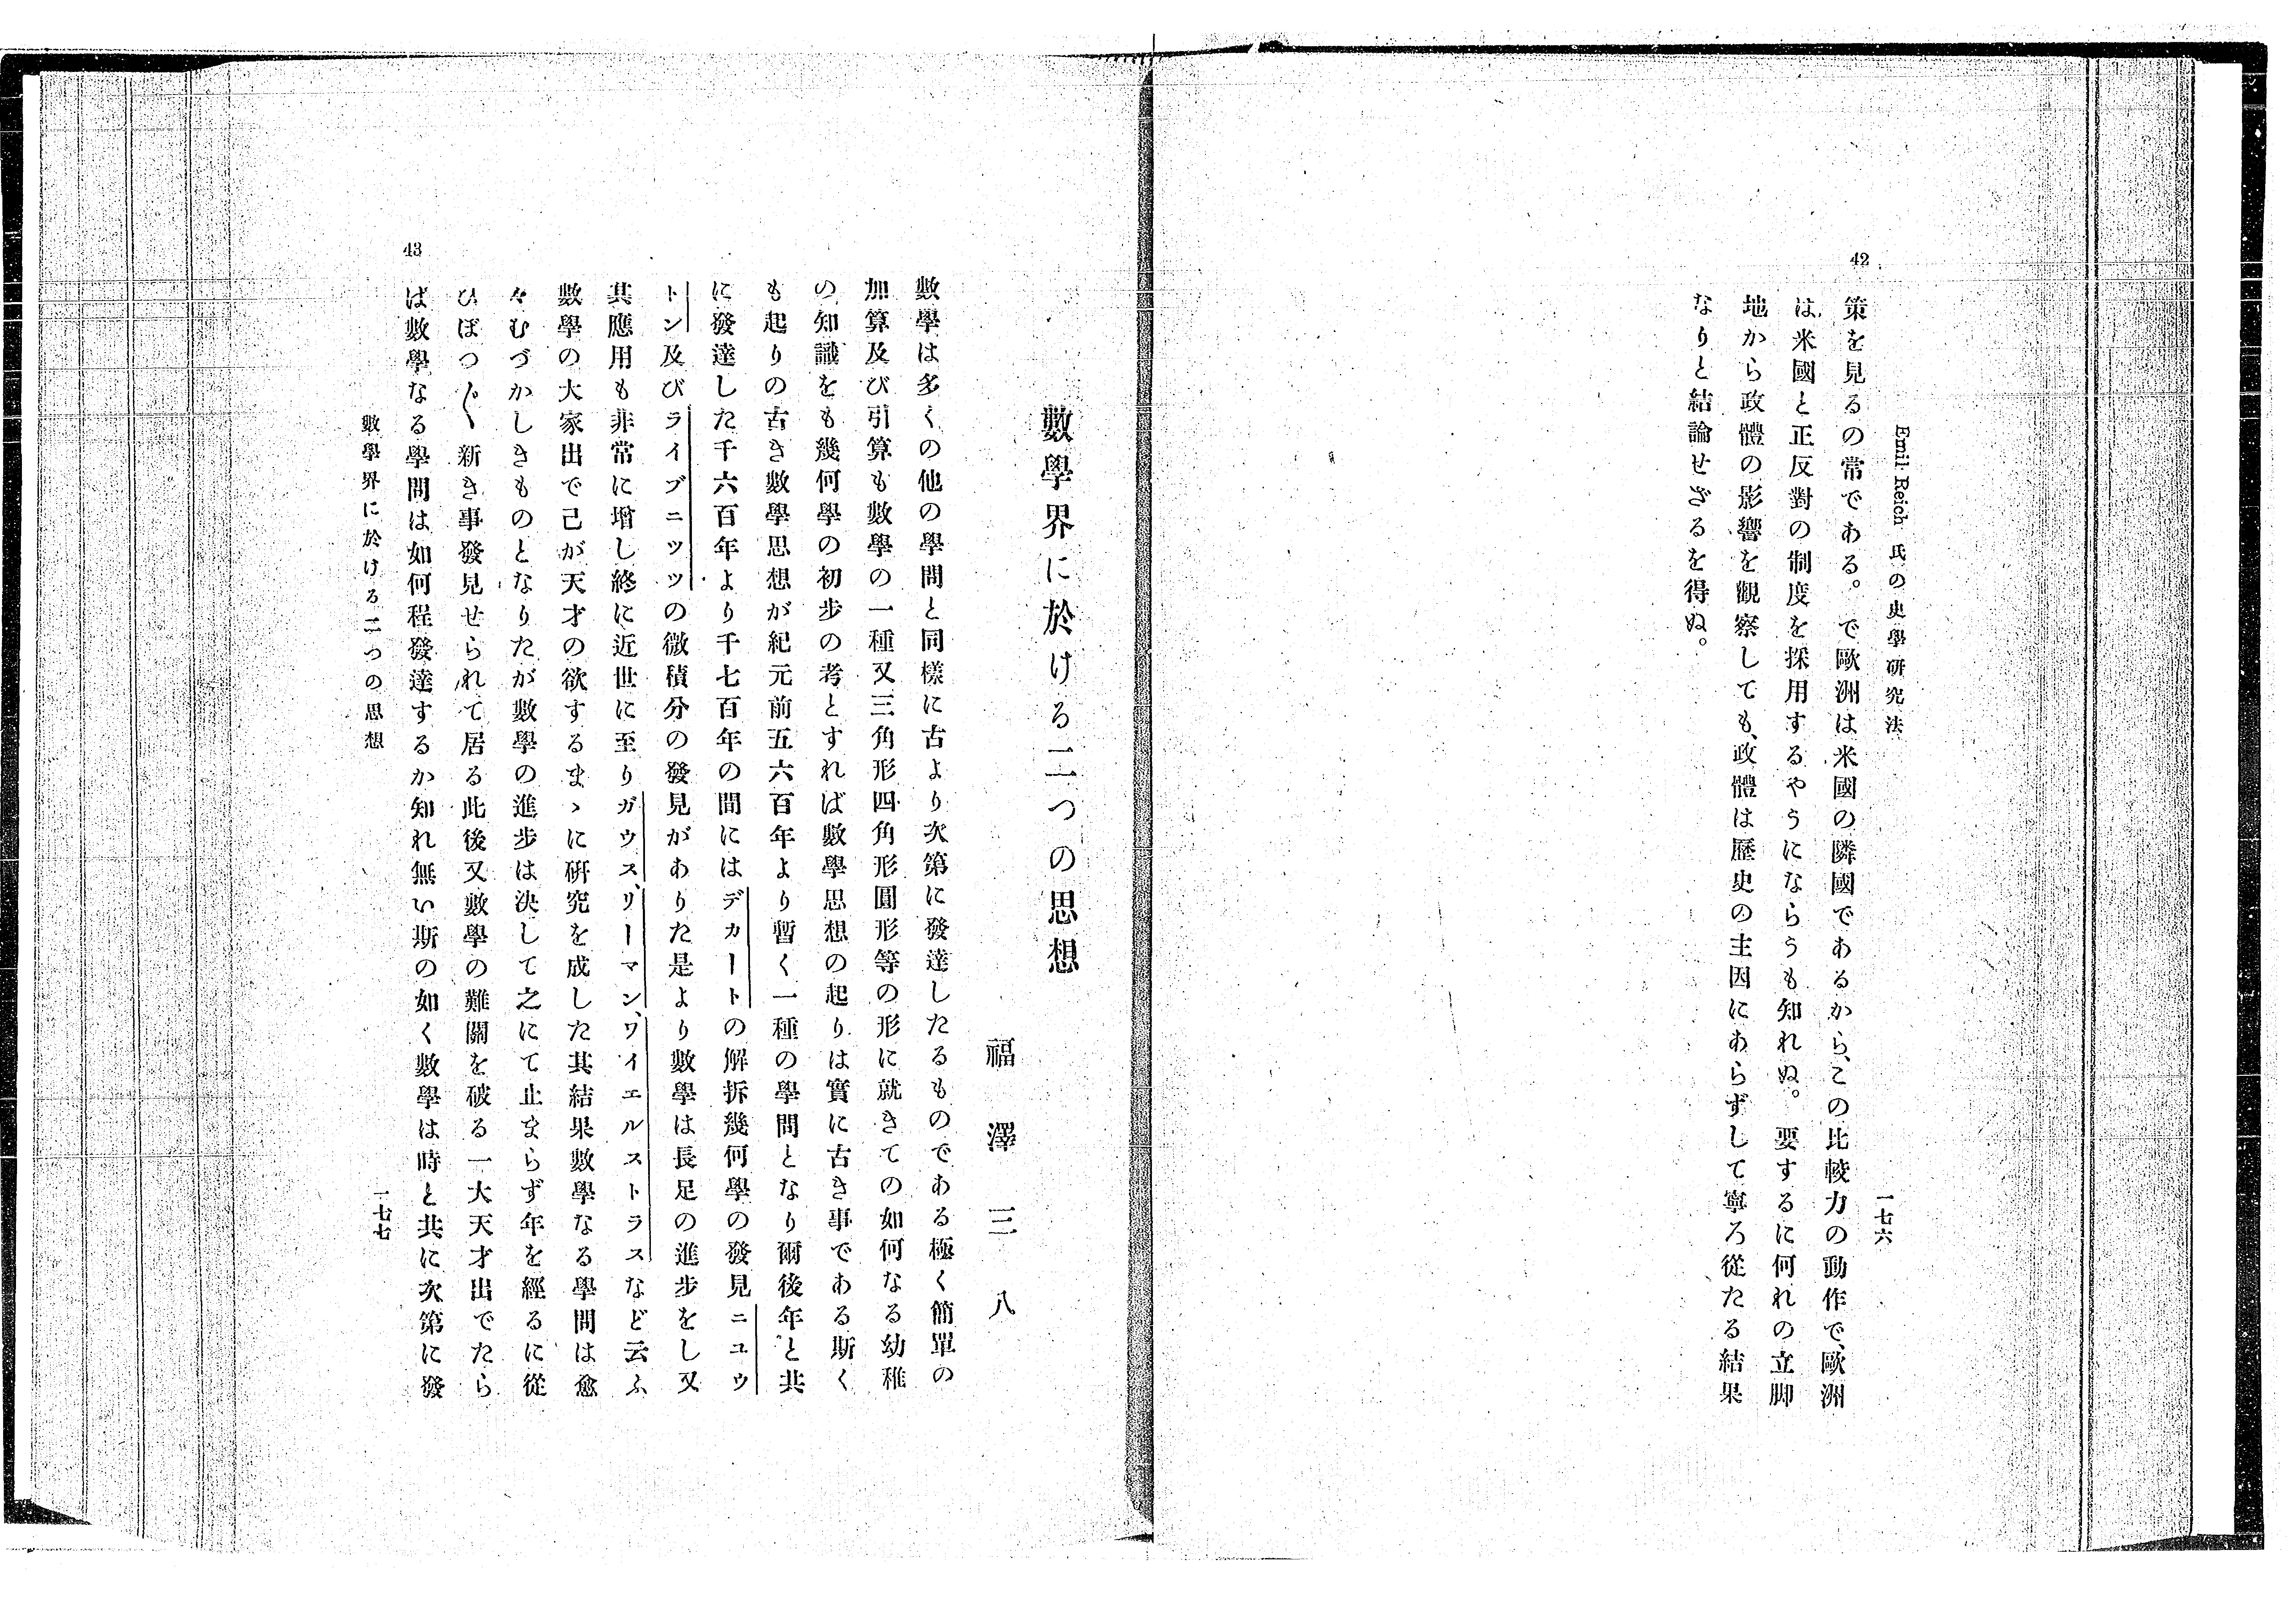 Emil Reich 氏の史學研究法
一七六
42
策を見るの常である。で歐洲は米國の隣國であるから、この比較力の動作で、歐洲
は米國と正反對の制度を採用するやうにならうも知れぬ。要するに何れの立脚
地から政體の影響を觀察しても、政體は歷史の主因にあらずして寧ろ從たる結果
なりと結論せざるを得ぬ。
數學界に於ける二つの思想
福澤三八
數學は多くの他の學問と同樣に古より次第に發達したるものである極く簡單の
加算及び引算も數學の一種又三角形四角形圓形等の形に就きての如何なる幼稚
の知識をも幾何學の初步の考とすれば數學思想の起りは實に古き事である斯く
も起りの古き數學思想が紀元前五六百年より暫く一種の學問となり爾後年と共
に發達した千六百年より千七百年の間にはデカートの解拆幾何學の發見ニユウ
トン及びライブニッツの微積分の發見がありた是より數學は長足の進步をし又
其應用も非常に增し終に近世に至りガウス、リーマン、ワイエルストラスなど云ふ
數學の大家出で己が天才の欲するまゝに硏究を成した其結果數學なる學問は愈
々むづかしきものとなりたが數學の進步は決して之にて止まらず年を經るに從
ひぽつ〱新き事發見せられて居る此後又數學の難關を破る一大天才出でたら
ば數學なる學問は如何程發達するか知れ無い斯の如く數學は時と共に次第に發
43
數學界に於ける二つの思想
一七七